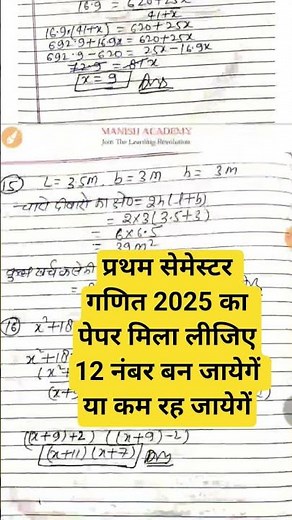 16.9 = 620+25x
41+x
16.9(41+x) = 620+25x
692.9+16.9x = 620+25x
692.9-620 = 25x-16.9x
x = 9 Ans
MANISH ACADEMY
Join The Learning Revolution
15) L = 3.5m b = 3m h = 3m
= 2×3(3.5+3)
= 6×6.5
= 39m²
16) x²+18
x²+18
प्रथम सेमेस्टर
गणित 2025 का
पेपर मिला लीजिए
12 नंबर बन जायेगें
या कम रह जायेगें
((x+9)+2) ((x+9)-2)
(x+11)(x+7) Ans